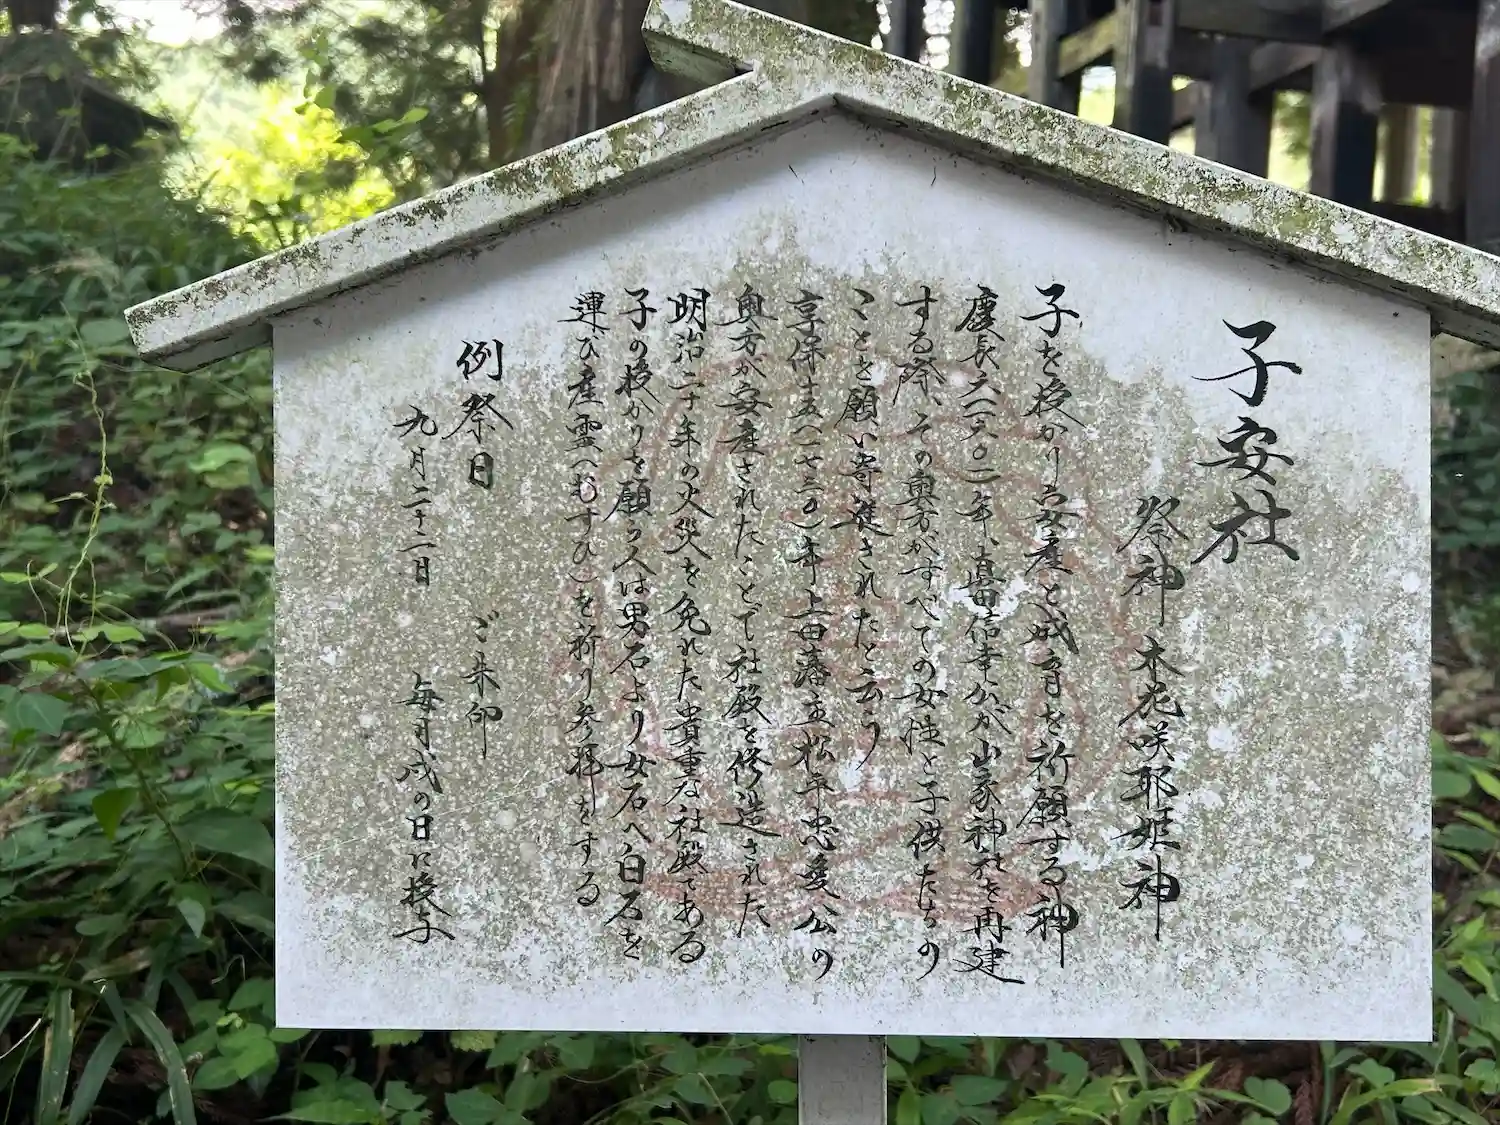 子安社
祭神 木花咲耶姫神
子を授かり安産と成育を祈願する神
慶長六(一六〇一)年、真田信幸が山家神社を再建
する際、その奥方がすべての女性と子供たちの
ことを願い寄進されたと云う
享保十五(一七三〇)年上田藩主松平忠愛公の
奥方が安産されたことで社殿を修造された
明治二十年の火災を免れた貴重な社殿である
子の授かりを願う人は男石より女石へ白石を
運び産霊(むすひ)を祈り参拝をする
例祭日
九月二十二日
ご朱印
毎月戌の日に授与